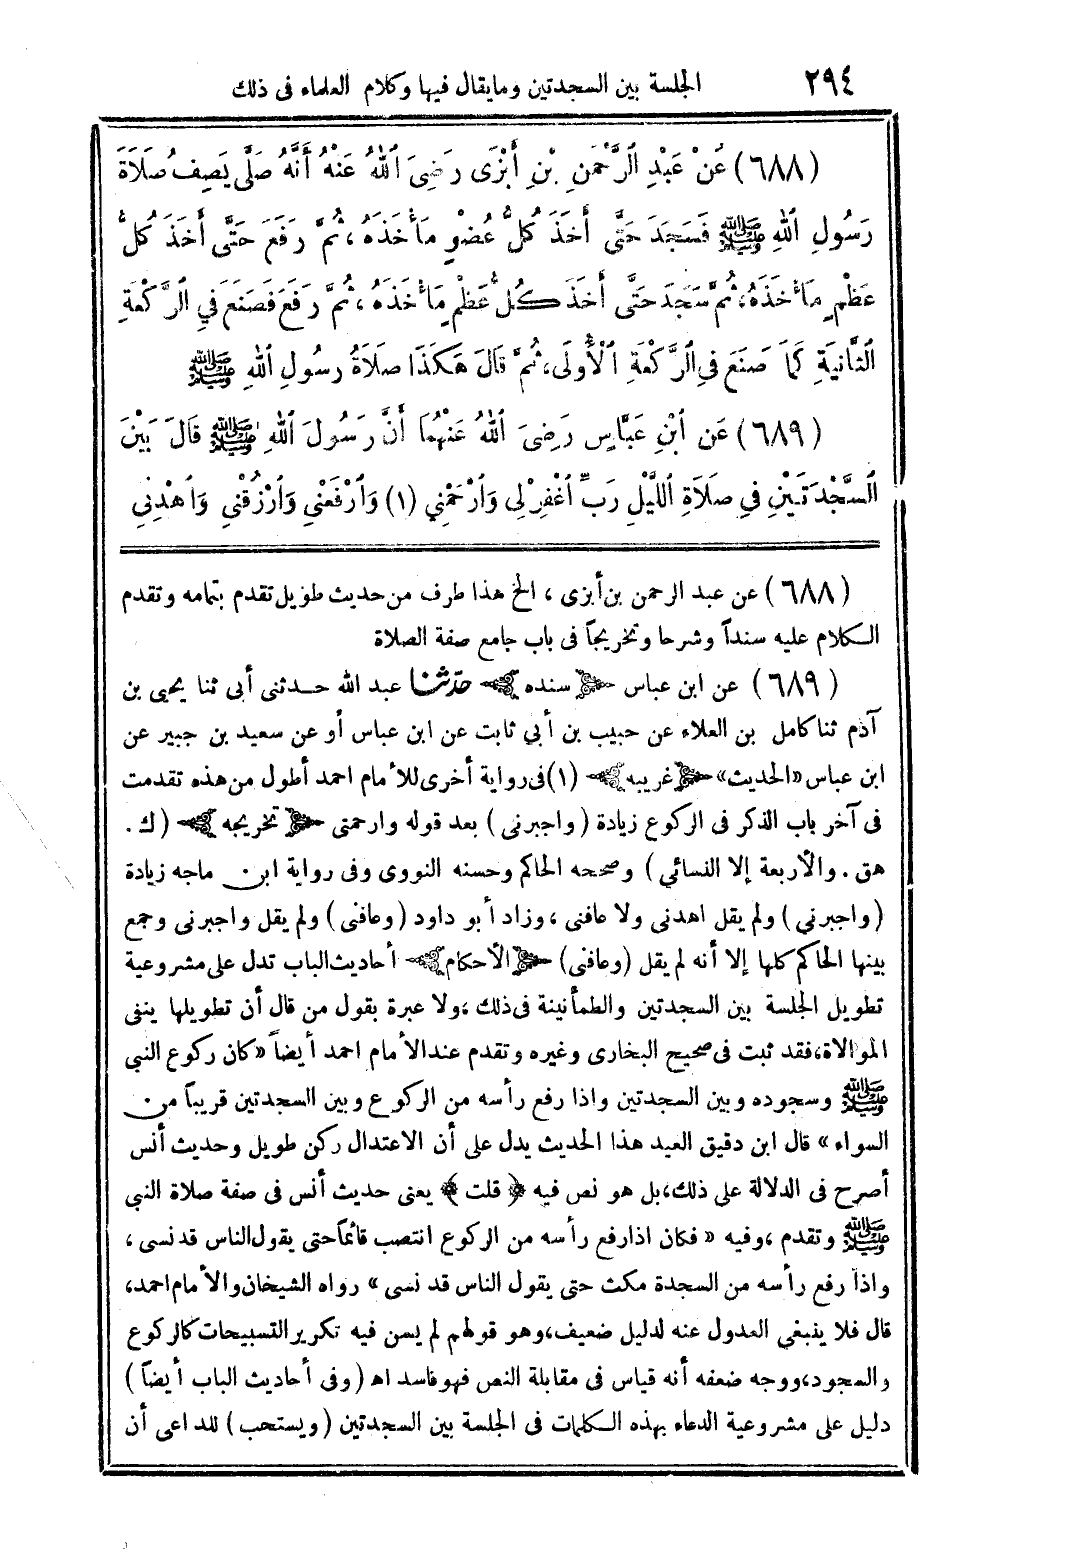 ٢٩٤ الجلسة بين السجدتين وما يقال فيها وكلام العلماء فى ذلك
(٦٨٨) عَنْ عَبْدِ الرَّحْمَنِ بْنِ أَبْزَى رَضِىَ اللهُ عَنْهُ أَنَّهُ صَلَّى يَصِفُ صَلَاةَ
رَسُولِ اللهِ ﷺ فَسَجَدَ حَتَّى أَخَذَ كُلُّ عُضْوٍ مَأْخَذَهُ ، ثُمَّ رَفَعَ حَتَّى أَخَذَ كُلُّ
عَظْمٍ مَأْخَذَهُ، ثُمَّ سَجَدَ حَتَّى أَخَذَ كُلُّ عَظْمٍ مَأْخَذَهُ ، ثُمَّ رَفَعَ فَصَنَعَ فِي الرَّكْعَةِ
الثَّانِيَةِ كَمَا صَنَعَ فِي الرَّكْعَةِ الْأُولَى، ثُمَّ قَالَ هَكَذَا صَلَاةُ رَسُولِ اللهِ ﷺ
(٦٨٩) عَنِ ابْنِ عَبَّاسٍ رَضِىَ اللهُ عَنْهُمَا أَنَّ رَسُولَ اللهِ ﷺ قَالَ بَيْنَ
السَّجْدَتَيْنِ فِي صَلَاةِ اللَّيْلِ رَبِّ اغْفِرْ لِى وَارْحَمْنِي (١) وَارْفَعْنِي وَارْزُقْنِي وَاهْدِنِي
(٦٨٨) عن عبد الرحمن بن أبزى ، الخ هذا طرف من حديث طويل تقدم بتمامه وتقدم
الكلام عليه سنداً وشرحا وتخريجاً فى باب جامع صفة الصلاة
(٦٨٩) عن ابن عباس ﴿سنده﴾ حدّثنا عبد الله حدثنى أبى ثنا يحيى بن
آدم ثنا كامل بن العلاء عن حبيب بن أبي ثابت عن ابن عباس أو عن سعيد بن جبير عن
ابن عباس «الحديث» ﴿غريبه﴾ (١) فى رواية أخرى للأمام احمد أطول من هذه تقدمت
فى آخر باب الذكر فى الركوع زيادة (واجبرنى) بعد قوله وارحمنى ﴿تخريجه﴾ (ك .
هق . والأربعة إلا النسائي) وصححه الحاكم وحسنه النووى وفى رواية ابن ماجه زيادة
(واجبرني) ولم يقل اهدنى ولا عافنى ، وزاد أبو داود (وعافنى) ولم يقل واجبرنى وجمع
بينها الحاكم كلها إلا أنه لم يقل (وعافنى) ﴿الأحكام﴾ أحاديث الباب تدل على مشروعية
تطويل الجلسة بين السجدتين والطمأنينة فى ذلك ،ولا عبرة بقول من قال أن تطويلها ينفى
الموالاة،فقد ثبت فى صحيح البخارى وغيره وتقدم عند الأمام احمد أيضاً «كان ركوع النبي
ﷺ وسجوده وبين السجدتين واذا رفع رأسه من الركوع وبين السجدتين قريباً من
السواء» قال ابن دقيق العيد هذا الحديث يدل على أن الاعتدال ركن طويل وحديث أنس
أصرح فى الدلالة على ذلك،بل هو نص فيه ﴿قلت﴾ يعنى حديث أنس فى صفة صلاة النبي
ﷺ وتقدم ،وفيه «فكان اذا رفع رأسه من الركوع انتصب قائماً حتى يقول الناس قد نسى ،
واذا رفع رأسه من السجدة مكث حتى يقول الناس قد نسى» رواه الشيخان والأمام احمد،
قال فلا ينبغى العدول عنه لدليل ضعيف،وهو قولهم لم يسن فيه تكرير التسبيحات كالركوع
والسجود،ووجه ضعفه أنه قياس فى مقابلة النص فهو فاسد اه (وفى أحاديث الباب أيضاً)
دليل على مشروعية الدعاء بهذه الكلمات فى الجلسة بين السجدتين (ويستحب) للداعى أن